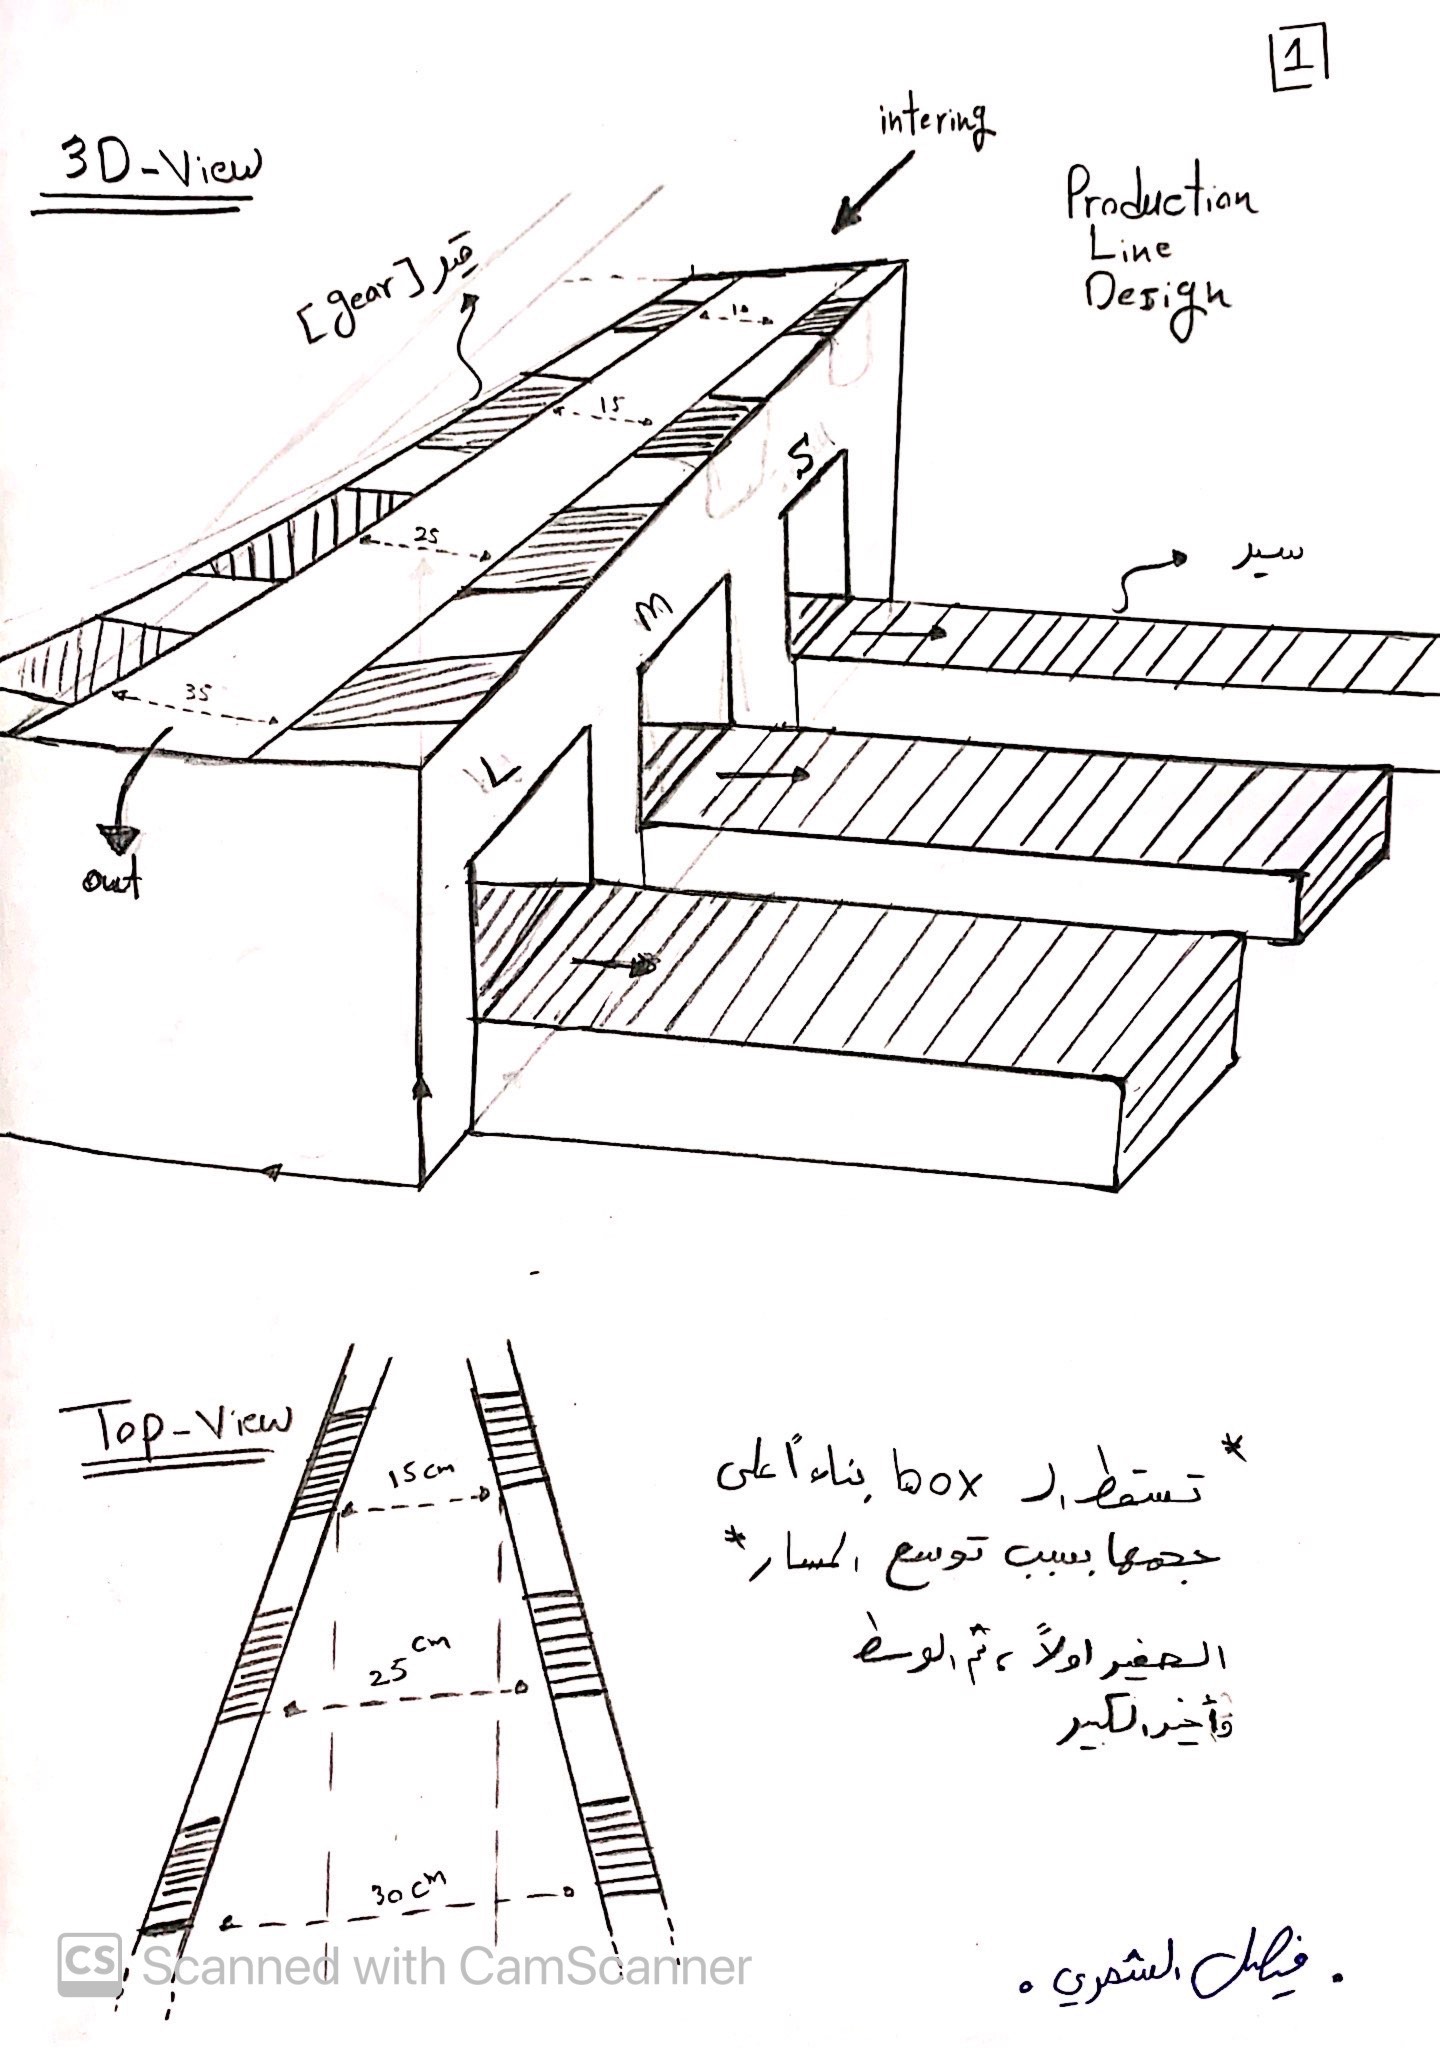 1
intering
3D-View
Production
Line
Design
[gear]
10
15
S
25
سير
M
35
L
out
Top-View
15 cm
25 cm
30 cm
* تسقط الـ box بناءاً على
حجمها بسبب توسع المسار *
الصغير اولاً ، ثم الوسط
وأخير الكبير
فيصل الشمري
CS Scanned with CamScanner